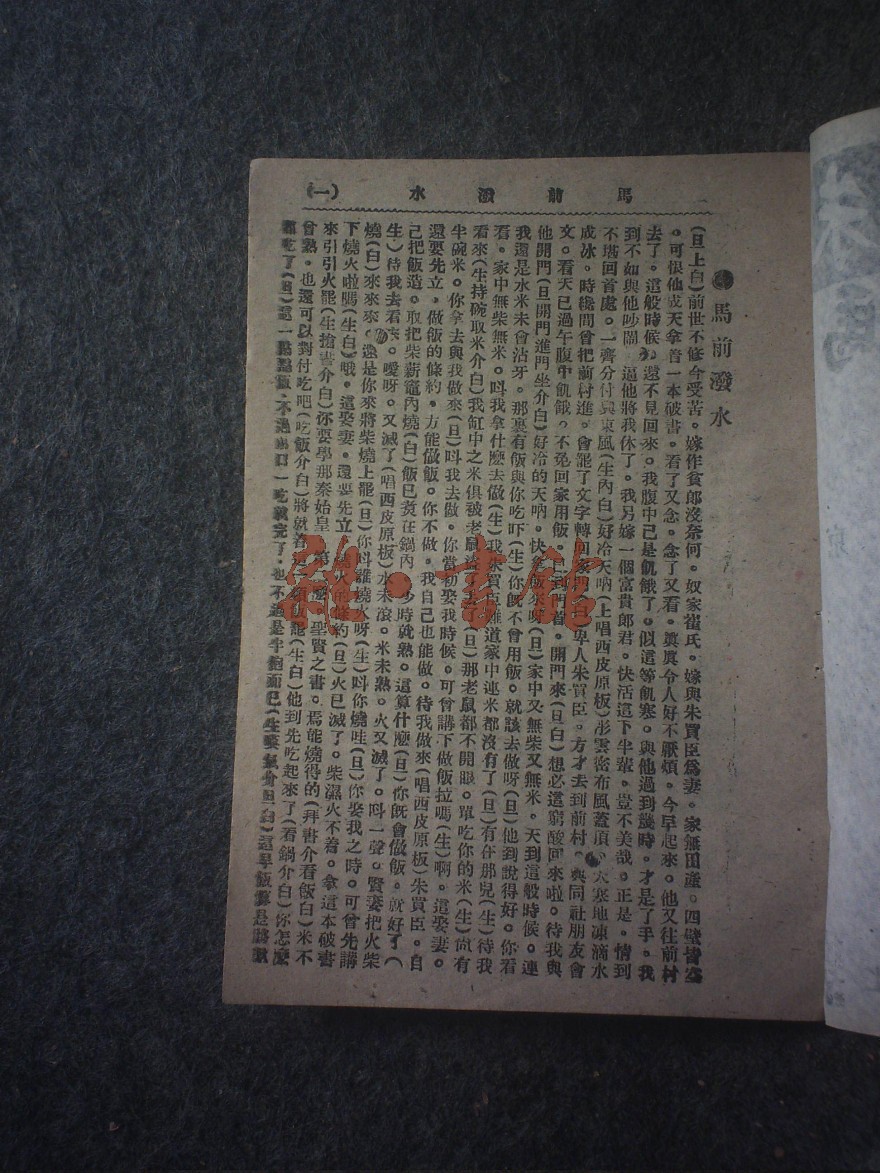 馬前潑水 (一)
馬前潑水
(旦上白)前世不修今受苦。嫁作貧郎沒奈何。奴家崔氏。嫁與朱買臣為妻。家無田產。四壁皆空
。可恨他成天拿著一本破書。看了又念。念了又看。真真令人好不厭煩。今早起來。他又往前村
去了。這般時候。還不見回來。我腹中已是飢餓了。似這等飢寒。與他過到幾時。才是了手。我
到不如與他吵鬧。逼他將我休了。我另嫁一個富貴郎君。快活這下半輩。豈不美哉。正是。情到
不堪回首處。一齊分付與東風(生內白)好冷天吶(上唱西皮原板)彤雲密布風蓋頂。大寒地凍滴水
成冰。時纔間曾把前村進。會罷了文字轉回家門(白)卑人朱買臣。方才去到前村。與同社朋友會
文。看天已過午腹中飢餓。不免回家用飯。已到門首。開門來(旦白)想必這窮酸回來啦。待我與
他開門(旦開門進門坐介白)好冷的天吶。快拿飯來呀(旦)家中又無柴又無米。天到這般時候。連
我還是水米未曾沾牙。那裏有飯與你吃吓(生)你既不曾用飯。就該去做呀(旦)他到說得好。你看
看。家中無柴無米。叫我拿什麼去做(生)我朱買臣難道家中連米都沒有了(旦)有在那兒(生)待我
看來(生持碗取米介白)我缸中之米俱被老鼠 了(旦)那老鼠都不開眼。單吃你的米(生)尚有
半碗米。你拿去與我做來(旦)叫我去做。你當初娶我時候。可曾講下做飯拉嗎(生)啊。這娶妻。
還要先立。做飯的條約。方能做飯。你不做。我自己也能做。待我做來(唱西皮原板)朱買臣。自
己把飯造。取把柴薪竈內燒(白)飯已煑在鍋內。 多時就熟。這算什麼(旦)你既會做飯。就好了(
生)待我去看來。噯呀。又滅了(唱西皮原板)水未滾。米未熟。火又滅了。叫一聲。賢妻把火柴
燒(白)來來來。還是你來將柴燒上罷(旦)你叫誰燒火呀(生)叫你燒哇(旦)你娶我之時。可曾先講
下燒火啦嗎(生白)哦。這娶妻。還要先立 火的條約(旦)火已滅了。柴濕火不着。拿這本破書
來引引火罷(生搶書介白)你要學那秦始皇。第 麼。聖賢之書。焉能燒得的(拜書介看飯白)米不
曾熟。也還可以對付吃吧(吃飯介白)將就着 頓 罷(生白)他到先吃起來了(看鍋介白)你怎麼
都吃了(旦)這一點點飯。不過 口一吃就完了。也不過是半飽而已(生 氣介旦白)這早飯算是將就